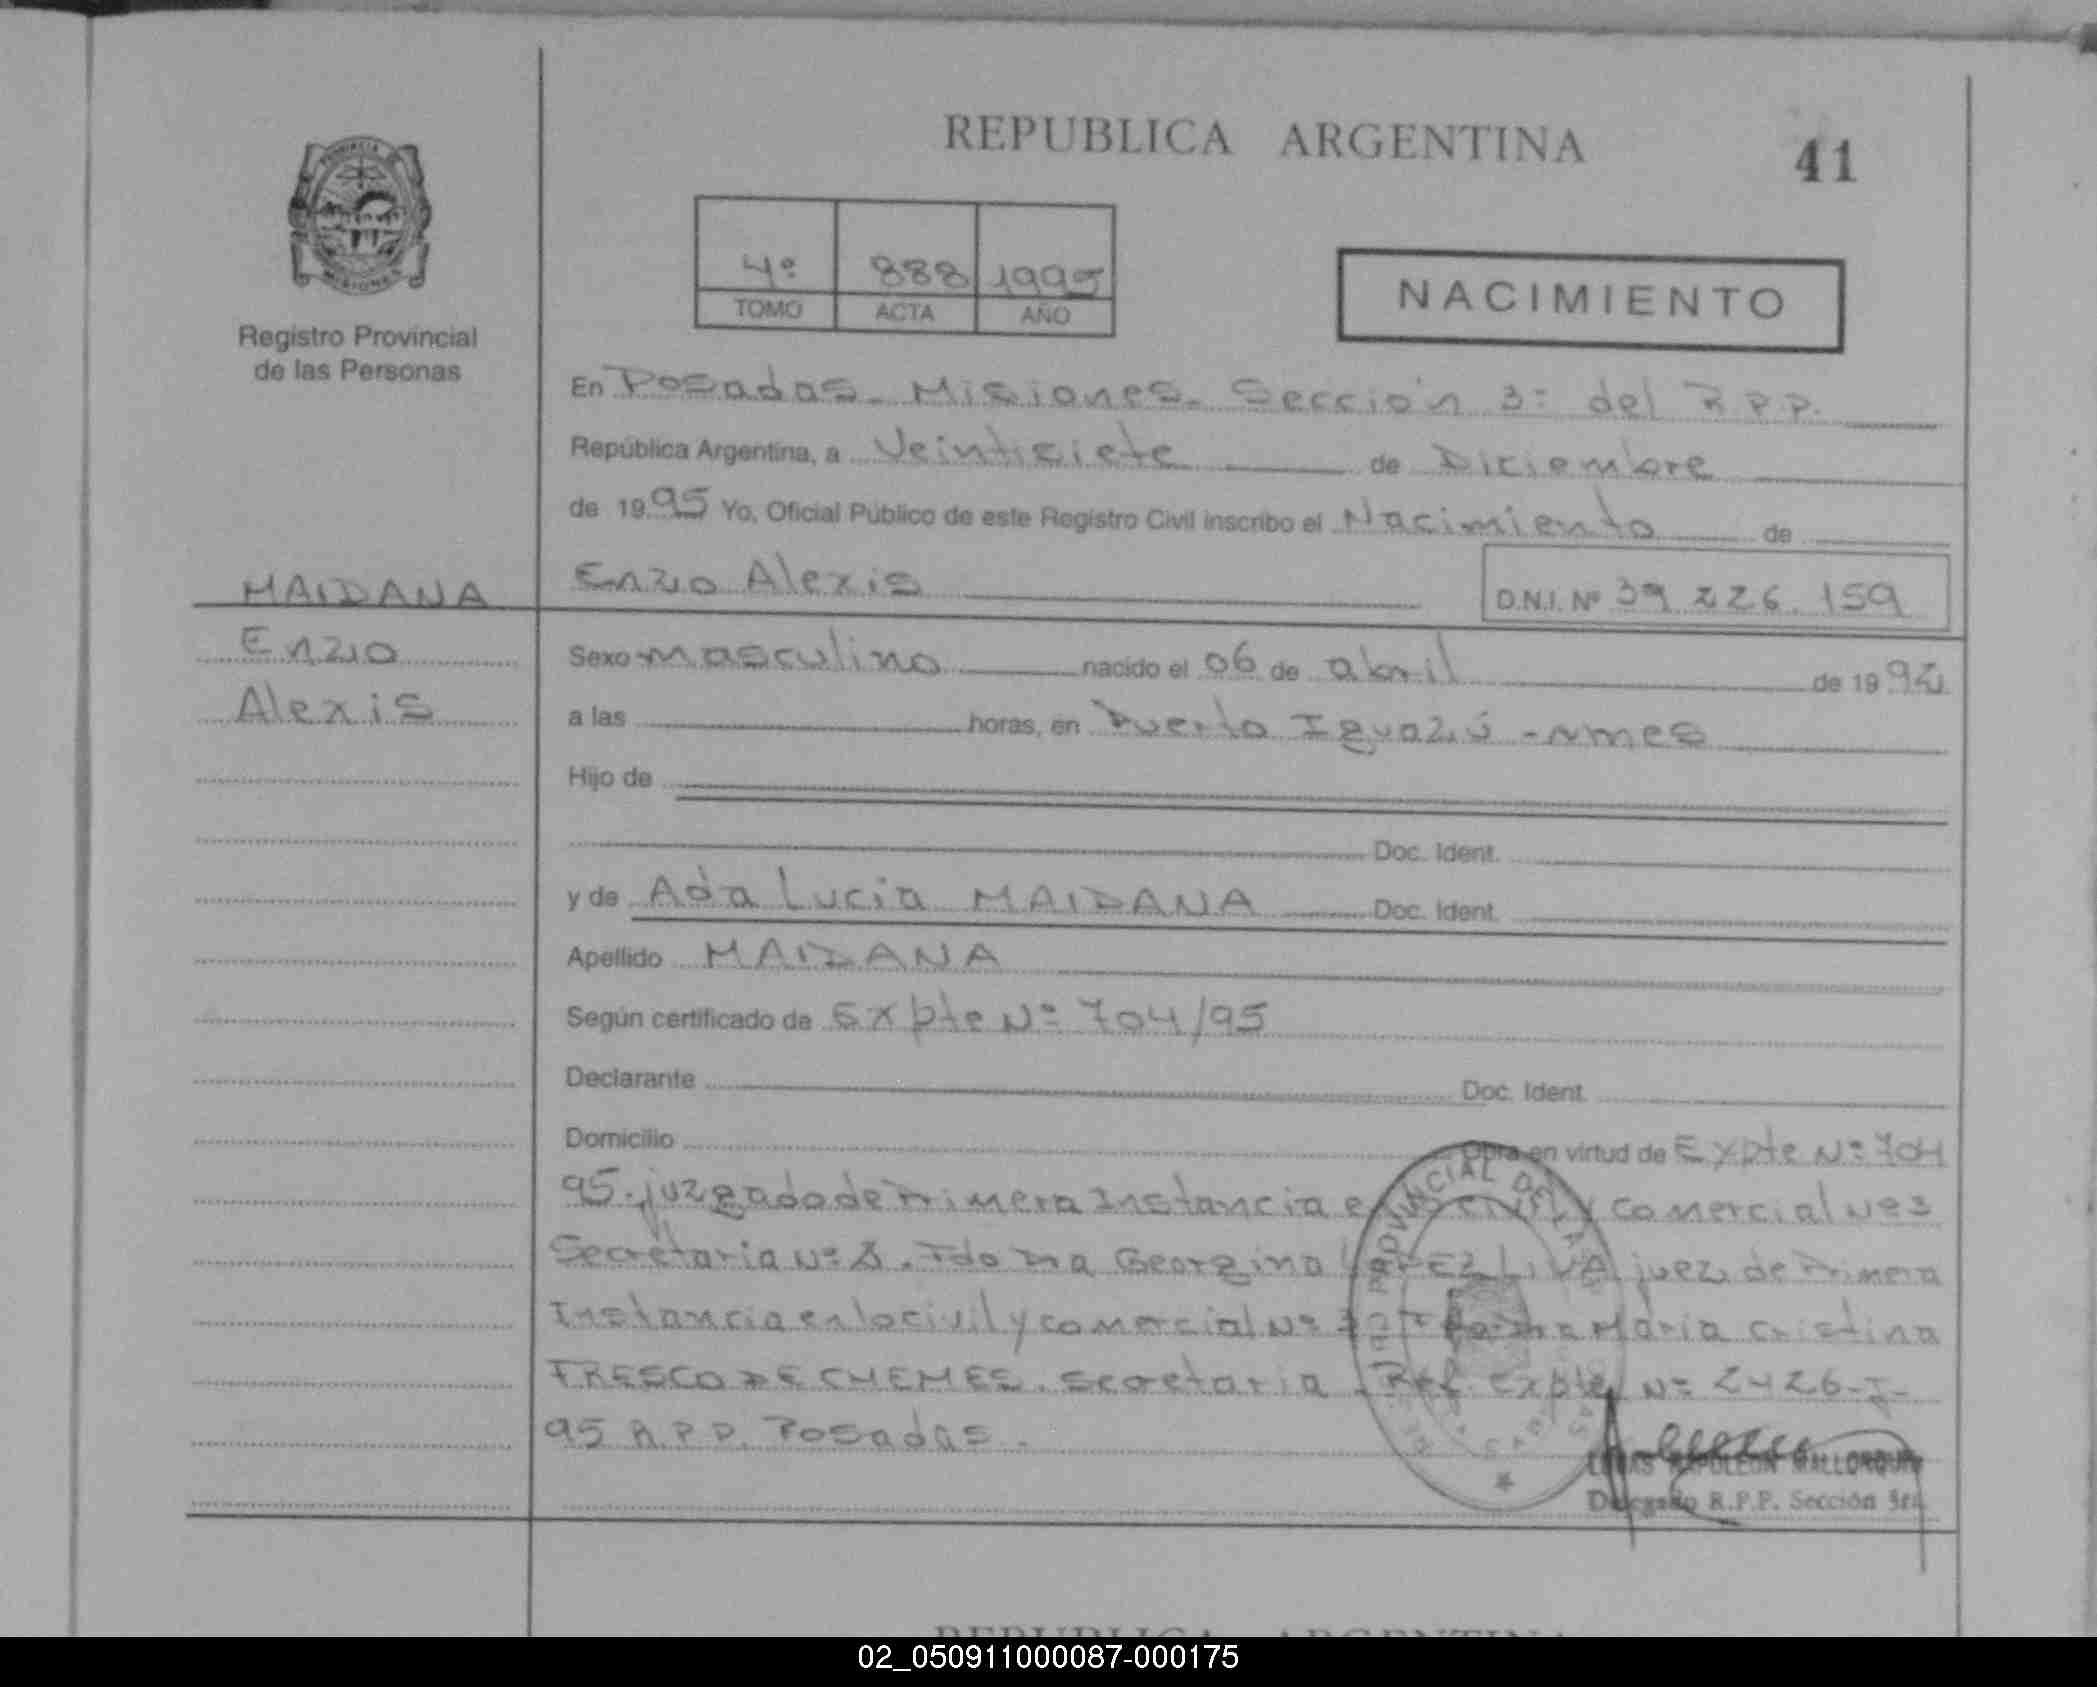 REPUBLICA ARGENTINA
41
PROVINCIA DE
MISIONES
Registro Provincial
de las Personas
4º 888 1995
TOMO ACTA AÑO
NACIMIENTO
En Posadas - Misiones - Sección 3= del R.P.P.
República Argentina, a Veintisiete de Diciembre
de 1995 Yo, Oficial Público de este Registro Civil inscribo el Nacimiento de
MAIDANA
Enzo Alexis
D.N.I. Nº 39.226.159
Enzo
Alexis
Sexo masculino nacido el 06 de abril de 19
a las horas, en Puerto Iguazú - mnes
Hijo de
Doc. Ident.
y de Ada Lucia MAIDANA Doc. Ident.
Apellido MAIDANA
Según certificado de Expte Nº 704/95
Declarante Doc. Ident.
Domicilio Obra en virtud de Expte Nº 704
95. juzgado de Primera Instancia en civil y comercial Nº 3
Secretaria Nº Georgina juez de Primera
Instancia en lo civil y comercial Nº 3 Maria Cristina
FRESCO DE CHEMES. secretaria. Ref. Expte Nº 2426-I-
95 R.P.P. Posadas.
NAPOLEON MALLORQUIN
Delegado R.P.P. Sección 3ra.
REPUBLICA ARGENTINA
02_050911000087-000175